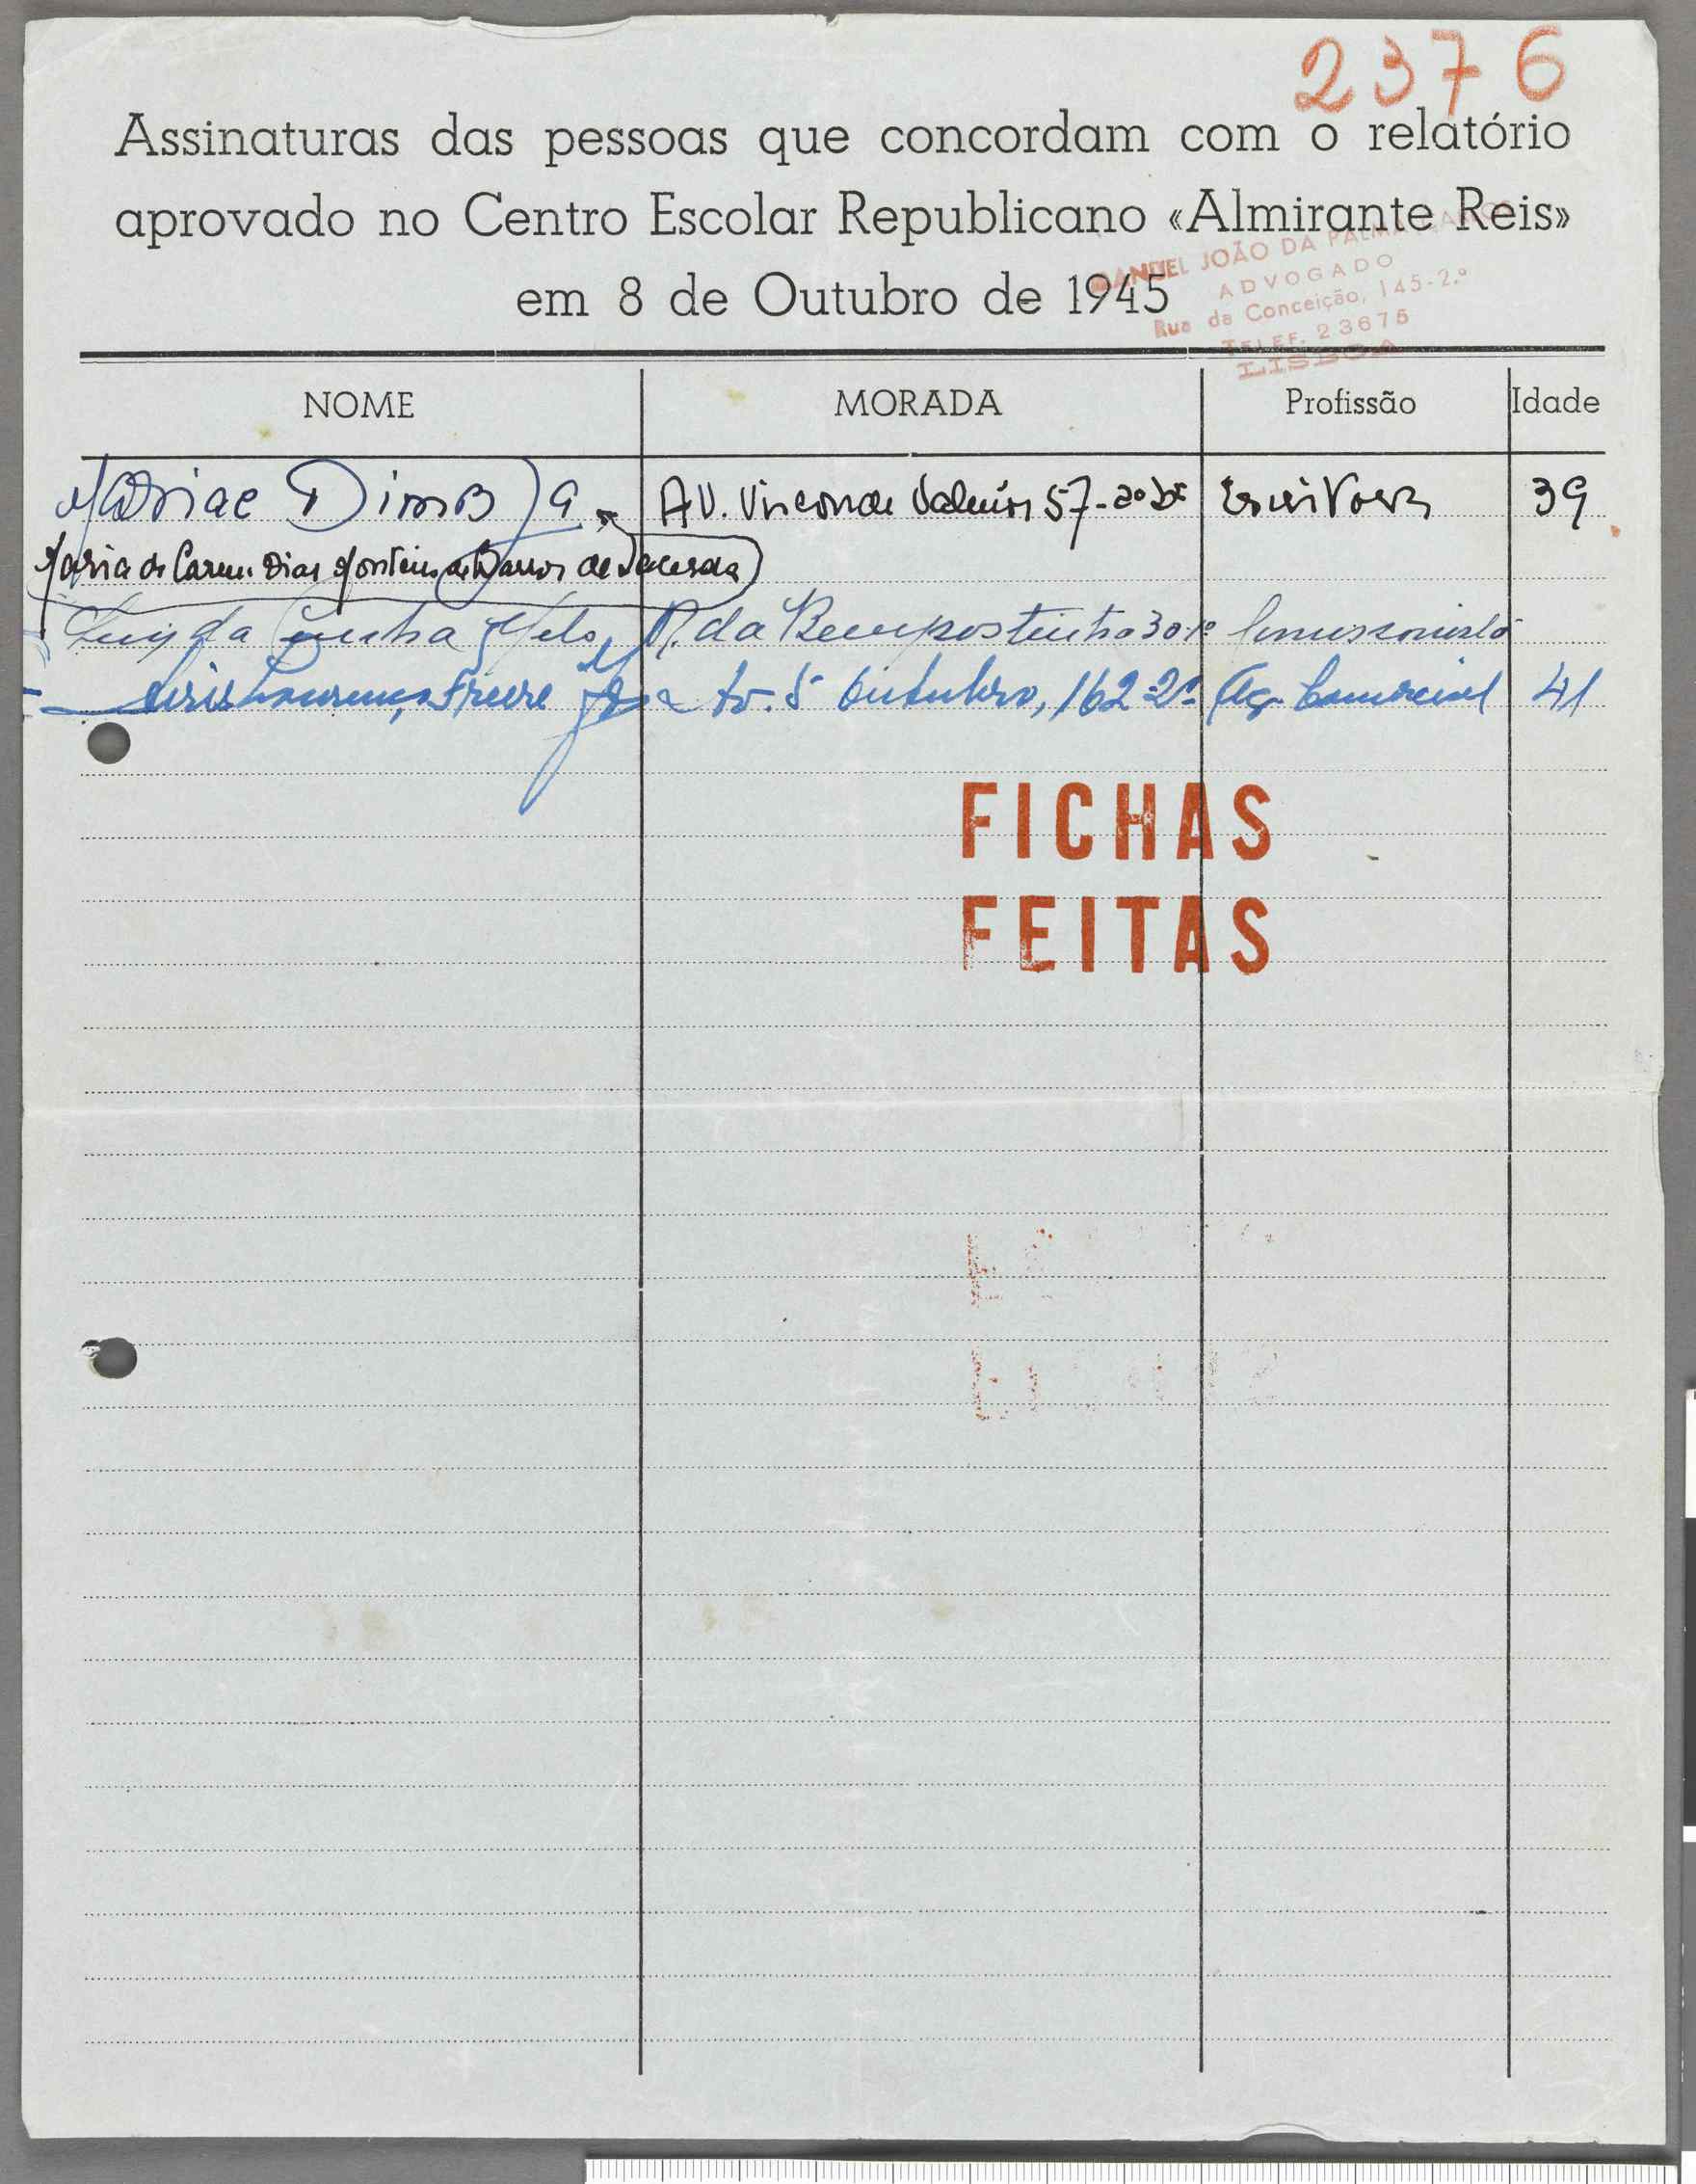 2376
Assinaturas das pessoas que concordam com o relatório
aprovado no Centro Escolar Republicano «Almirante Reis»
em 8 de Outubro de 1945
MANUEL JOÃO DA PALMA
ADVOGADO
Rua da Conceição, 145-2.º
TELEF. 23675
LISBOA
NOME MORADA Profissão Idade
Av. Visconde Valmôr 57-2º Escritora 39
Maria do Carmo Dias Monteiro de Barros de Lacerda
Luiz da Cunha Melo R. da Bempostinha 30 1º Comissionista
Luis Lourenço Freire Av. 5 Outubro, 162 2º Ag. Comercial 41
FICHAS
FEITAS